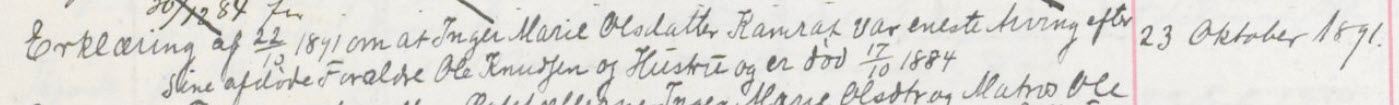 30/12 84 fr
Erklæring af 22/10 1891 om at Inger Marie Olsdatter Kamrat var eneste Arving efter 23 Oktober 1891.
sine afdøde Forældre Ole Knudsen og Hustru og er død 17/10 1884
Inger Marie Olsdtr og Matros Ole